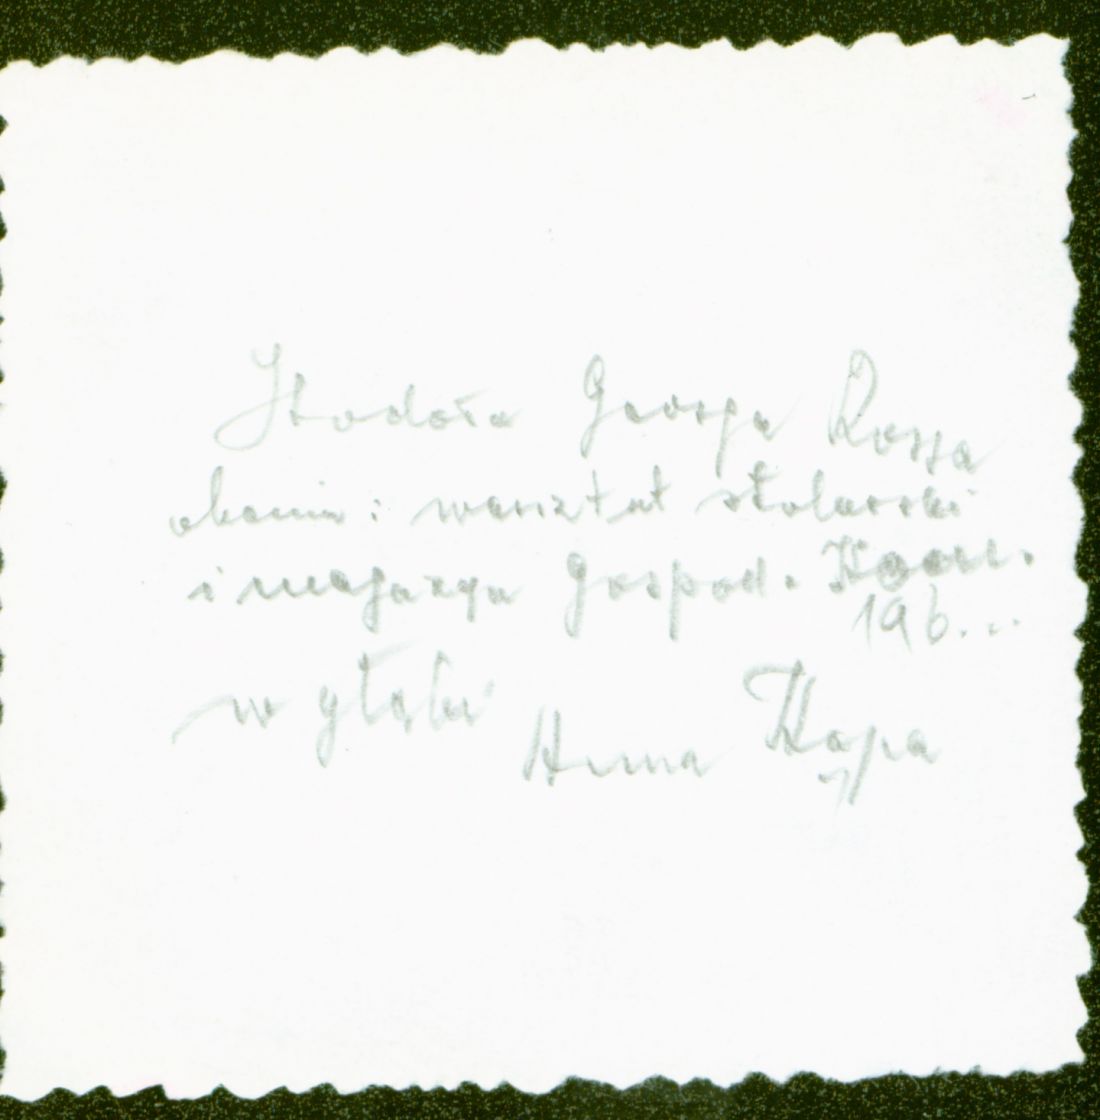 Stodoła Georga Rossa
obecnie: warsztat stolarski
i magazyn Gospod.
196...
w głębi Anna Kłapa